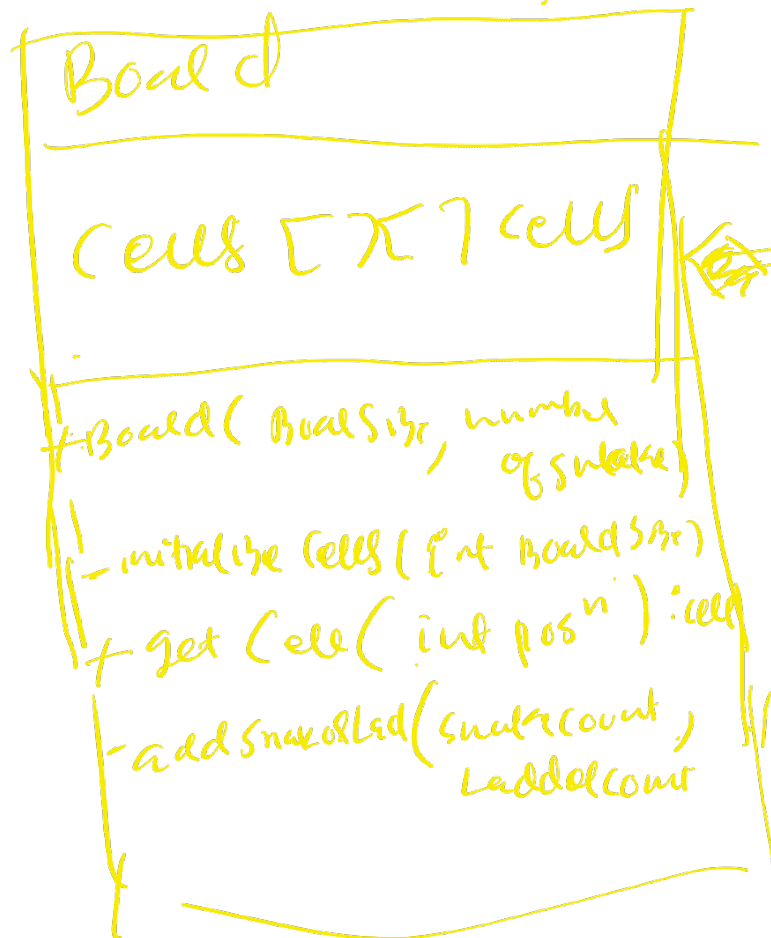 Board
Cells [ ] [ ] cells
+ Board( BoardSize, number
of snake)
- initialize Cells( int BoardSize)
+ get Cell( int posⁿ ) : cell
- add SnakeLad( snakecount,
Laddercount